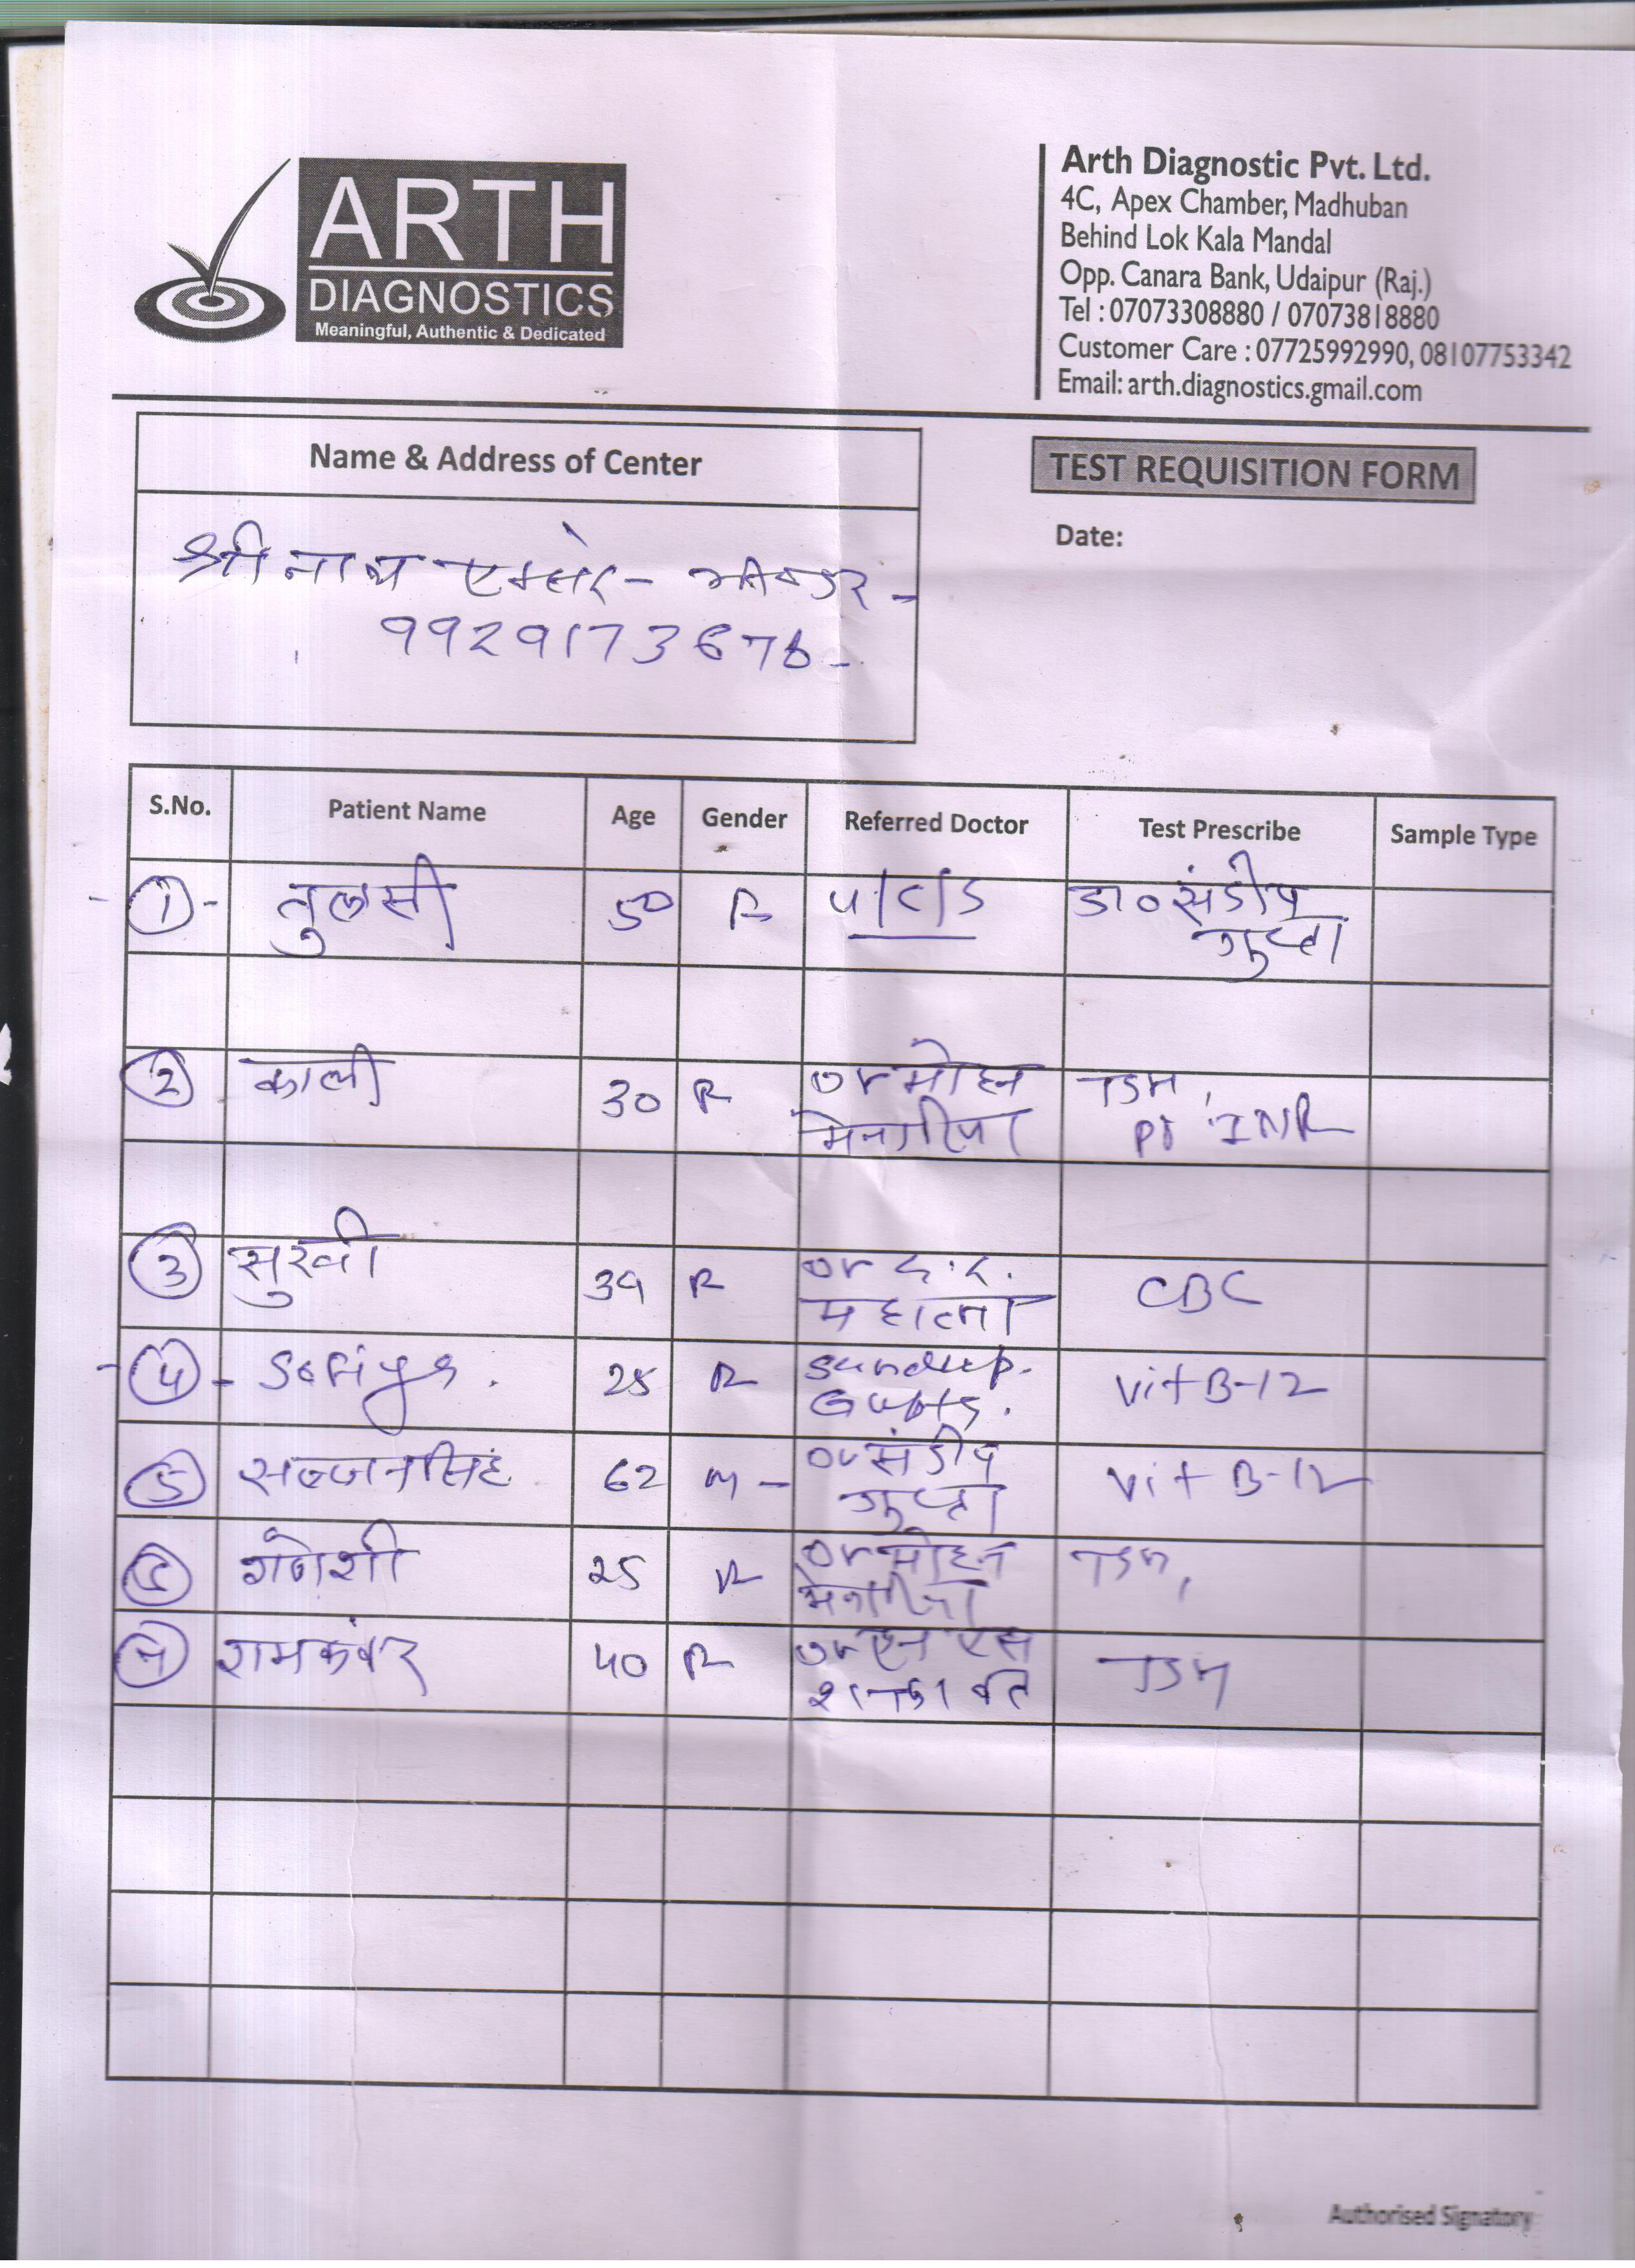 ARTH
DIAGNOSTICS
Meaningful, Authentic & Dedicated
Arth Diagnostic Pvt. Ltd.
4C, Apex Chamber, Madhuban
Behind Lok Kala Mandal
Opp. Canara Bank, Udaipur (Raj.)
Tel : 07073308880 / 07073818880
Customer Care : 07725992990, 08107753342
Email: arth.diagnostics.gmail.com
Name & Address of Center
TEST REQUISITION FORM
Date:
श्रीनाथ
S.No. Patient Name Age Gender Referred Doctor Test Prescribe Sample Type
1 तुलसी 50 F P/C/S डा० संदीप
गुप्ता
2 काली 30 F Dr मोहन TSH,
मेनारिया PT INR
3 सुखी 39 F Dr
CBC
4 Sofiya. 25 F Sandeep. Vit B-12
Gupta.
5 सज्जनसिंह 62 M - Dr संदीप Vit B-12
गुप्ता
6 गणेशी 25 F Dr मोहन TSH,
मेनारिया
7 रामकंवर 40 F Dr एन एस TSH
शक्तावत
Authorised Signatory